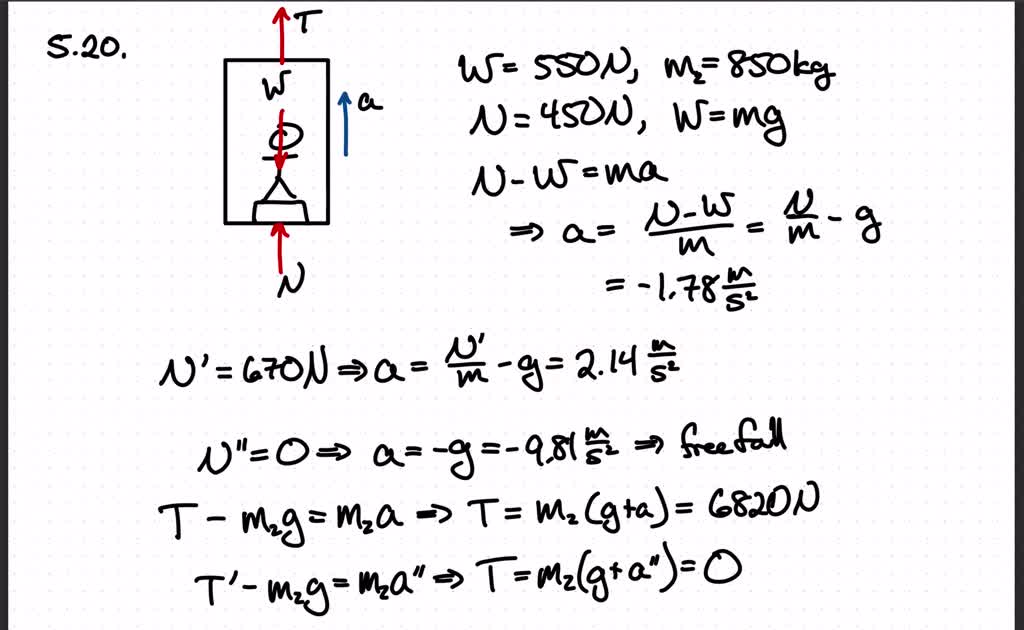 5.20.
T
W
a
N
W = 550N, m₂ = 850kg
N = 450N, W = mg
N - W = ma
⇒ a = (N - W)/m = N/m - g
= -1.78 m/s²
N' = 670N ⇒ a = N'/m - g = 2.14 m/s²
N'' = 0 ⇒ a = -g = -9.81 m/s² ⇒ free fall
T - m₂g = m₂a ⇒ T = m₂(g+a) = 6820N
T' - m₂g = m₂a'' ⇒ T = m₂(g+a'') = 0